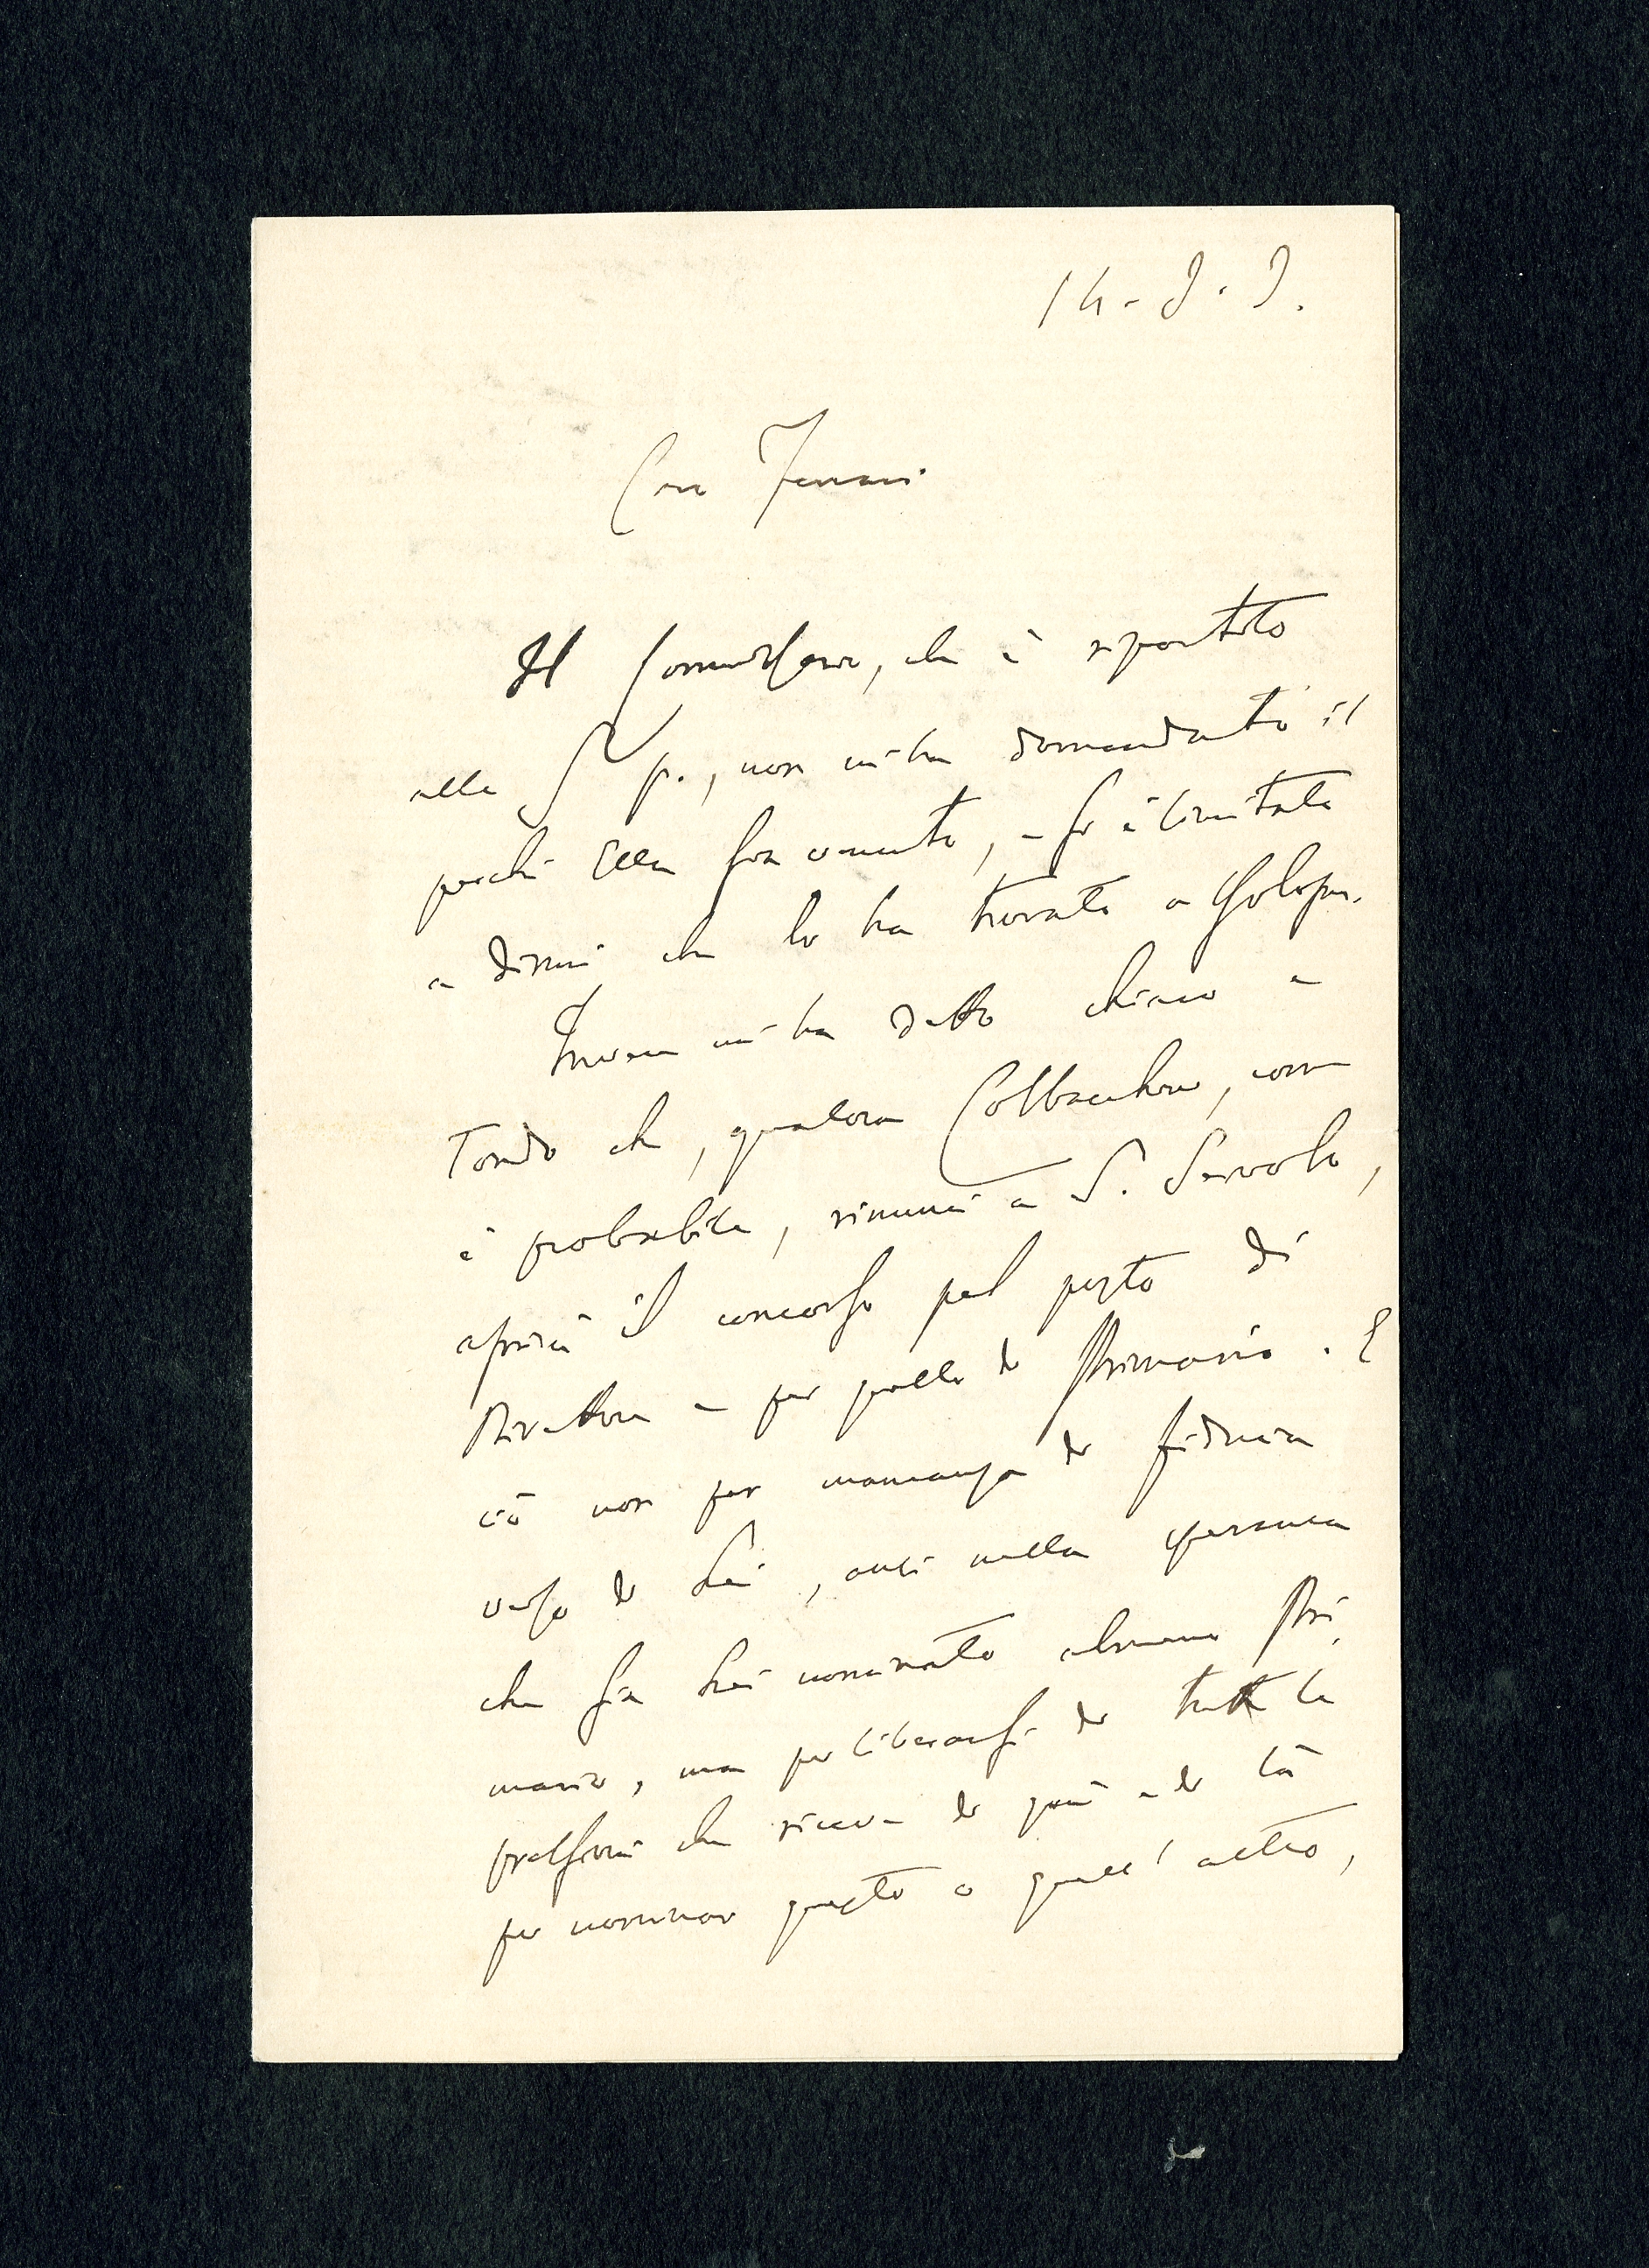 14-9-9.
Caro Ferrari
Il Commissario, che è ripartito
alle 5 p., non mi ha domandato il
perchè Ella sia venuto, e si è limitato
a dirmi che lo ha trovato a
Invece mi ha detto chiaro e
tondo che, qualora Colbacchini, come
è probabile, rinunci a S. Servolo,
aprirà il concorso pel posto di
Direttore e per quello di Primario. E
ciò non per mancanza di fiducia
verso di Lei, anzi nella speranza
che sia Lei nominato almeno Pri-
mario, ma per liberarsi da tutte le
pressioni che riceve di quà e di là
per nominar questo o quell'altro,